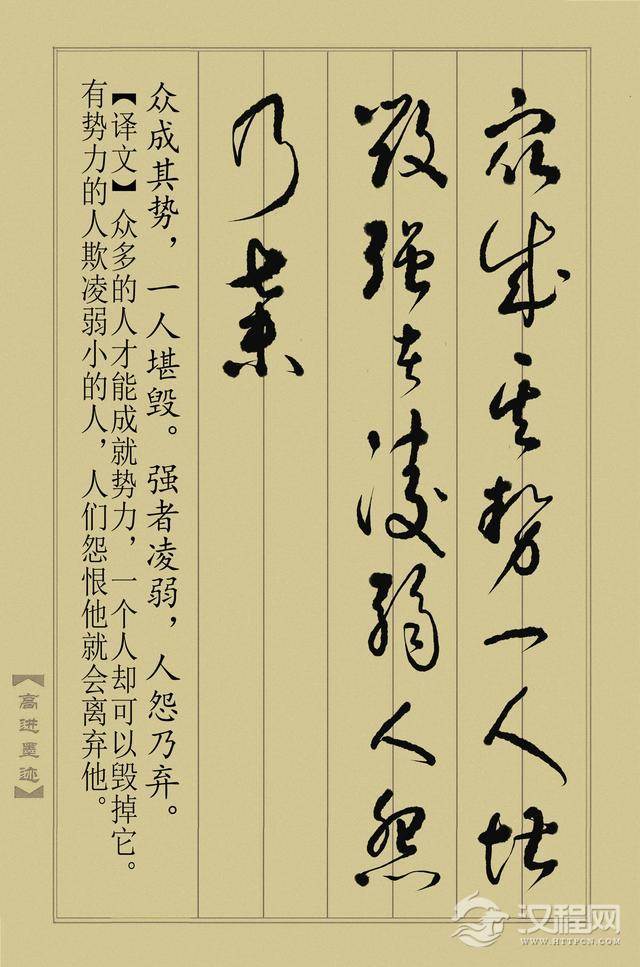 众成其势一人堪
毁强者凌弱人怨
乃弃
众成其势，一人堪毁。强者凌弱，人怨乃弃。
【译文】众多的人才能成就势力，一个人却可以毁掉它。
有势力的人欺凌弱小的人，人们怨恨他就会离弃他。
【高进墨迹】
汉程网
WWW.HTTPCN.COM